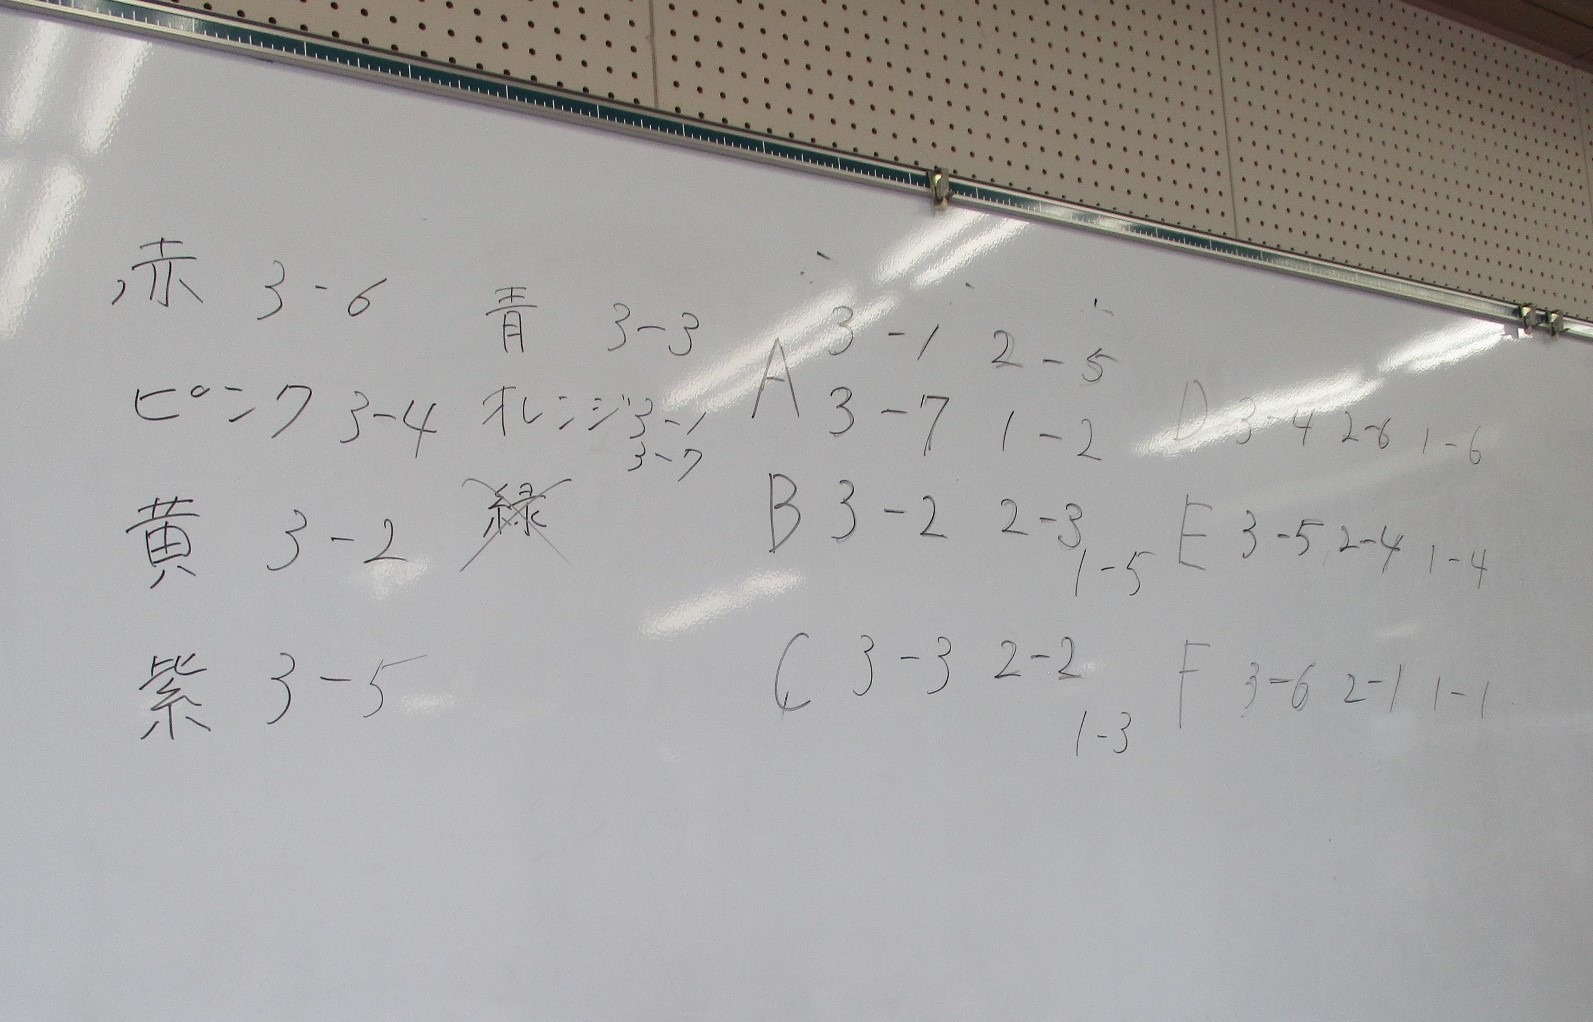 赤 3-6
ピンク 3-4
黄 3-2
紫 3-5
青 3-3
オレンジ 3-1
3-7
緑
A 3-1 2-5
3-7 1-2
B 3-2 2-3
1-5
C 3-3 2-2
1-3
D 3-4 2-6 1-6
E 3-5 2-4 1-4
F 3-6 2-1 1-1